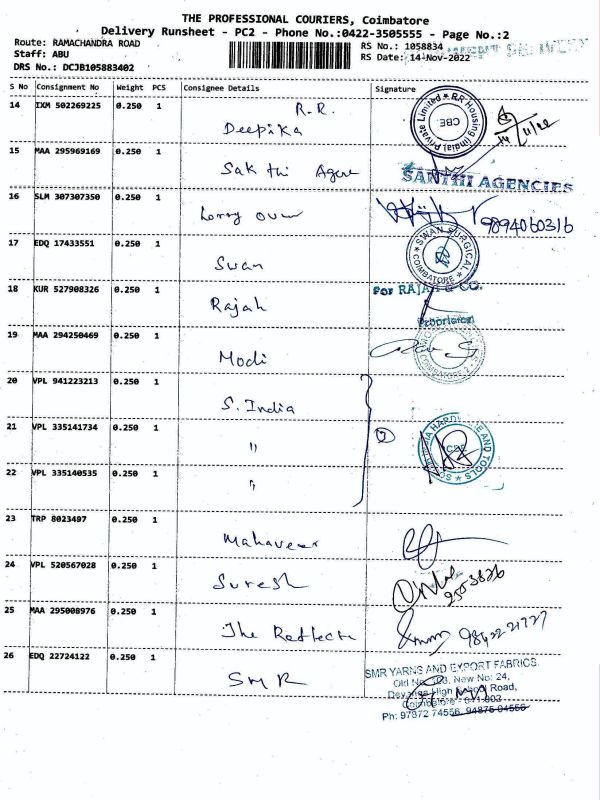 THE PROFESSIONAL COURIERS, Coimbatore
Delivery Runsheet - PC2 - Phone No.:0422-3505555 - Page No.:2
Route: RAMACHANDRA ROAD
Staff: ABU
DRS No.: DCJB105883402
RS No.: 1058834
RS Date: 14-Nov-2022
S No Consignment No Weight PCS Consignee Details Signature
14 IXM 502269225 0.250 1 R.R.
Deepika
RR Housing (India) Private Limited
CBE
14/11/22
15 MAA 295969169 0.250 1
Sakthi Agen
SANTHI AGENCIES
16 SLM 307307350 0.250 1
Lorry
9894060316
17 EDQ 17433551 0.250 1
Swan
SWAN SURGICAL
COIMBATORE
18 KUR 527908326 0.250 1
Rajah
For RAJAH & CO.
Proprietor
19 MAA 294250469 0.250 1
Modi
20 VPL 941223213 0.250 1
S. India
21 VPL 335141734 0.250 1
"
22 VPL 335140535 0.250 1
"
23 TRP 8023497 0.250 1
Mahaveer
24 VPL 520567028 0.250 1
Suresh
25 MAA 295008976 0.250 1
The Reflect
26 EDQ 22724122 0.250 1
SMR
SMR YARNS AND EXPORT FABRICS.
Old No. 103, New No: 24,
High School Road,
Coimbatore - 641 003
Ph: 97872 74556, 94875 04556